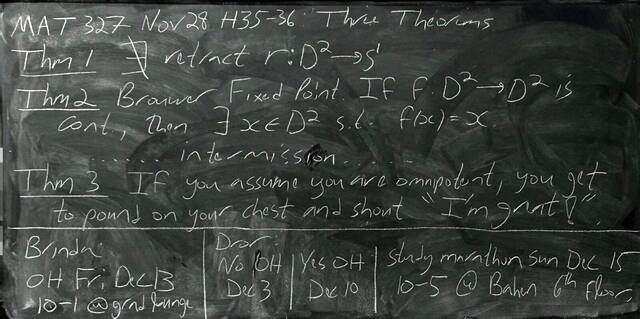 MAT 327 Nov 28 H35-36: Three Theorems
Thm 1 ∄ retract r: D² → S¹
Thm 2 Brouwer Fixed Point If f: D² → D² is
cont., then ∃ x ∈ D² s.t. f(x) = x
...... intermission ......
Thm 3 If you assume you are omnipotent, you get
to pound on your chest and shout "I'm great!".
Brinda:
OH Fri Dec 13
10-1 @ grad lounge
Dror:
No OH
Dec 3
Yes OH
Dec 10
study marathon sun Dec 15
10-5 @ Bahen 6th floor,